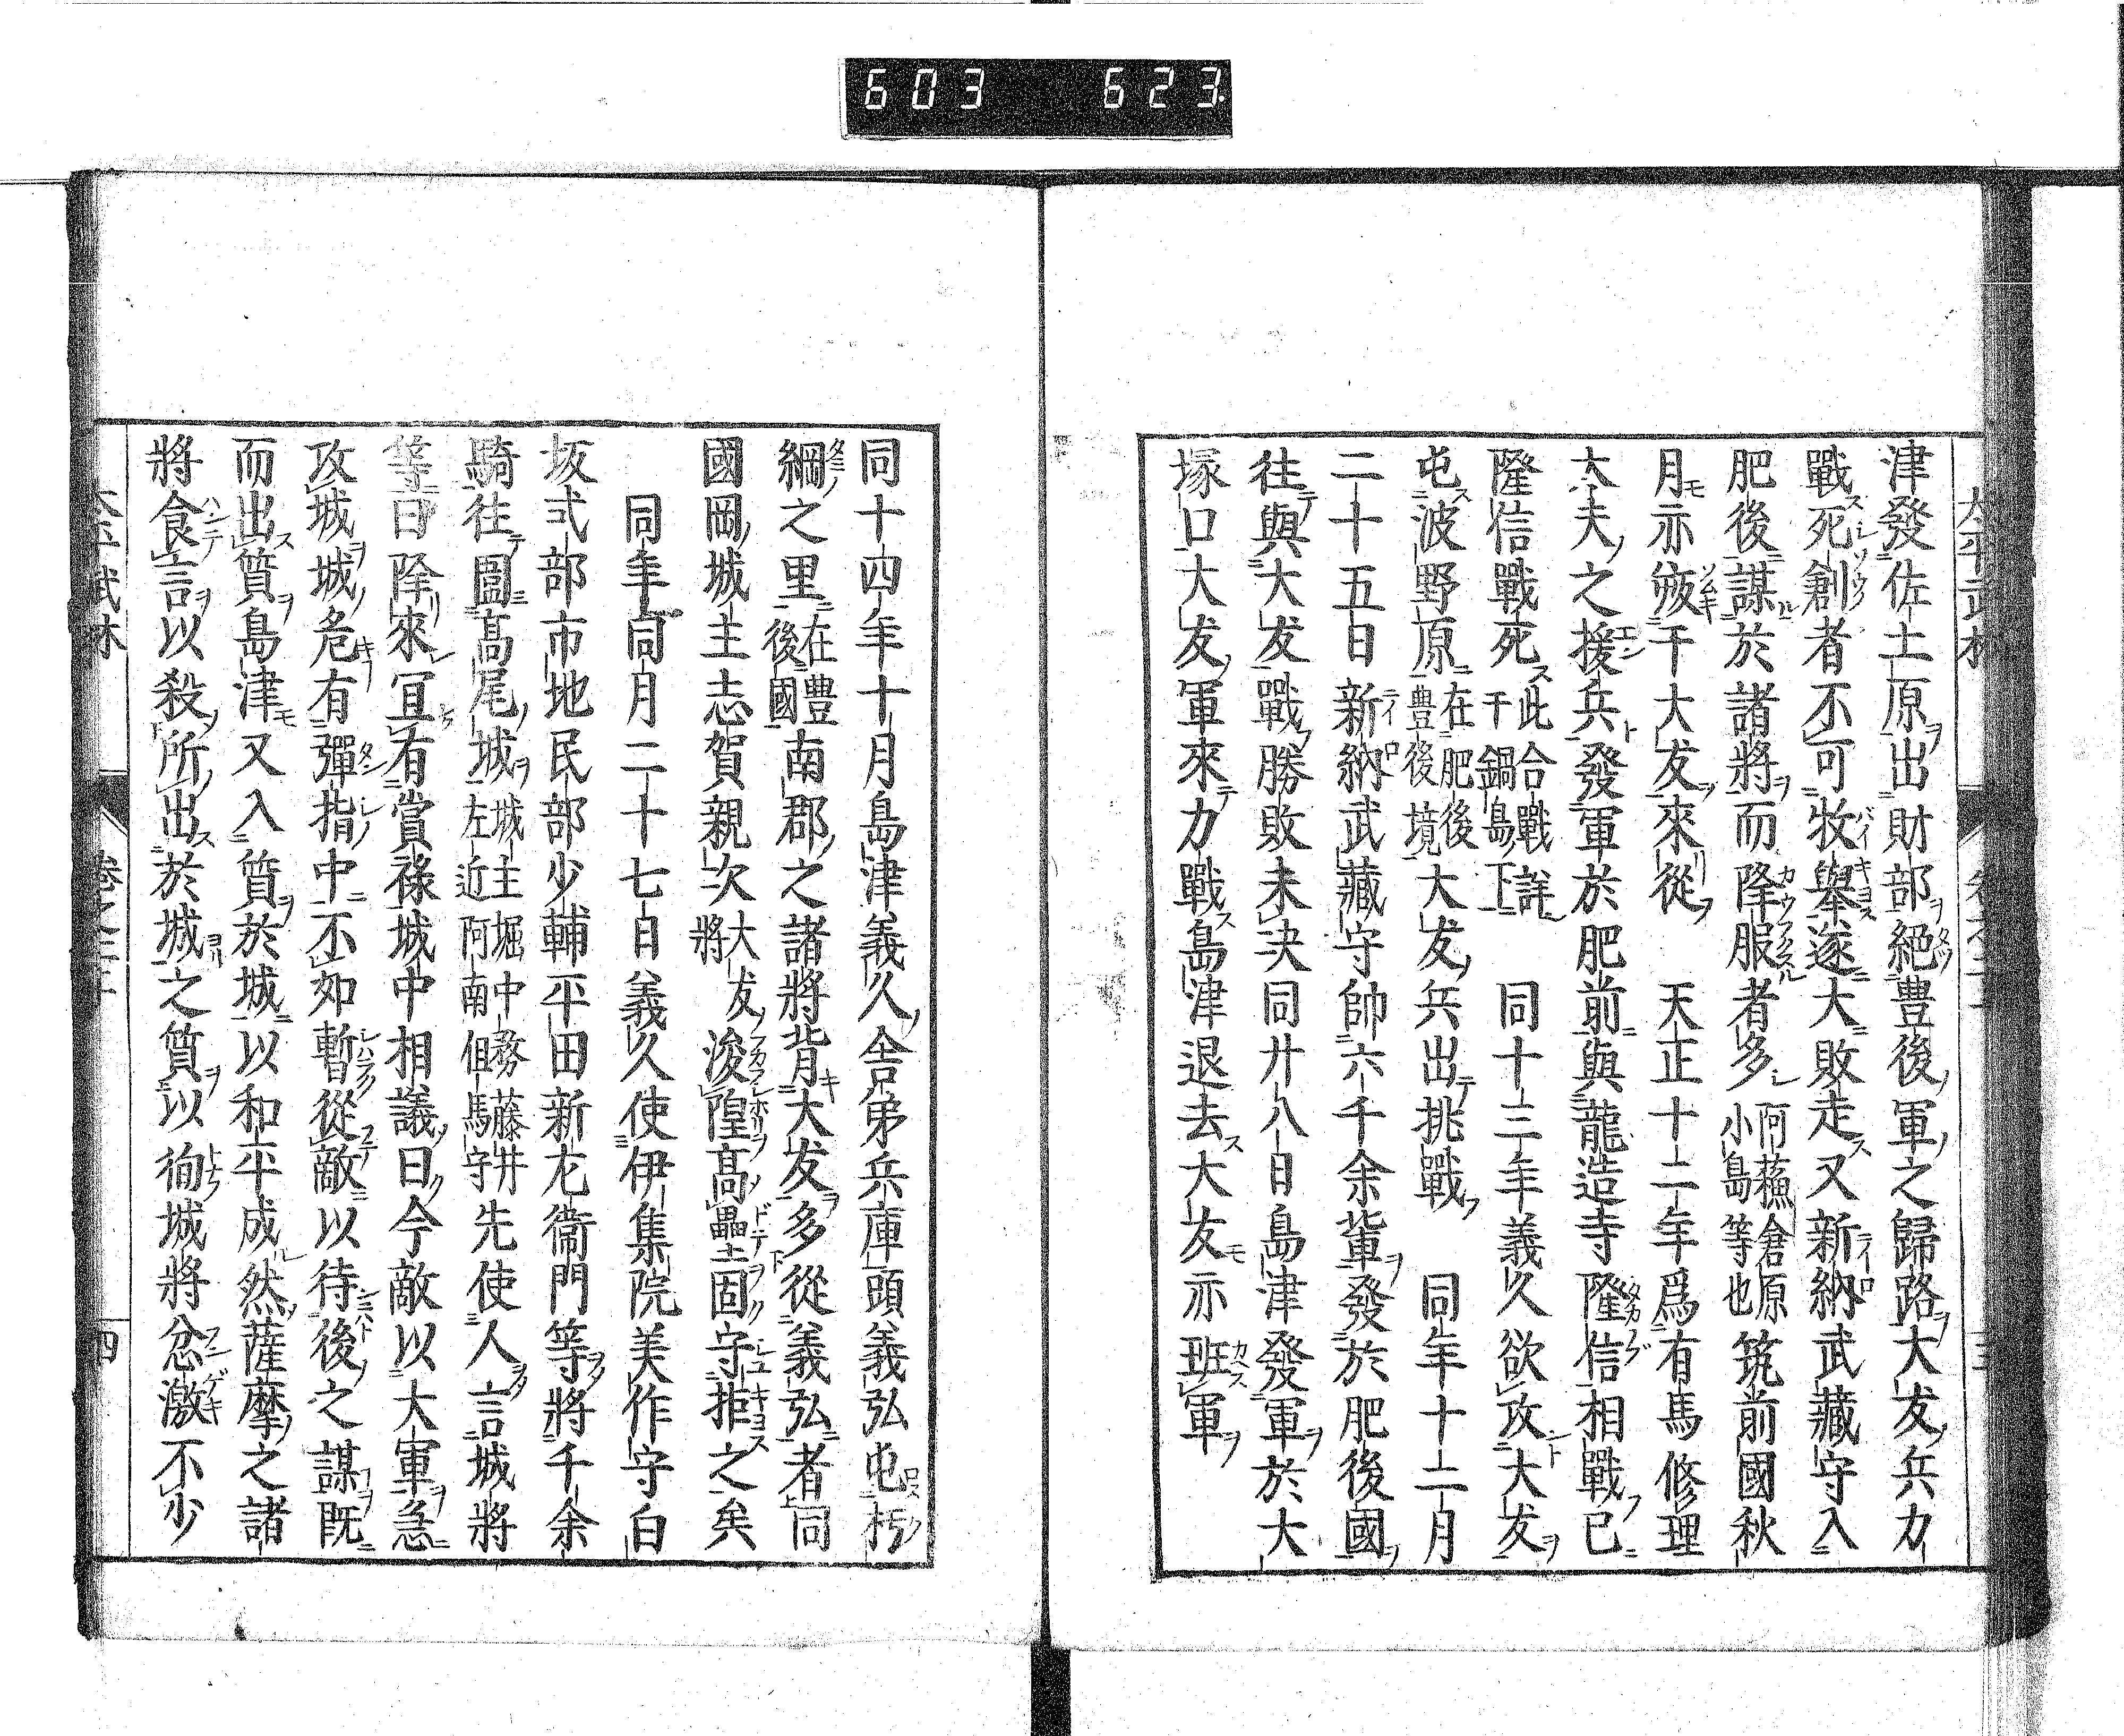 603 623.
津發佐土原出財部絕豊後軍之歸路大友兵力
戰死創者不可牧擧遂大敗走又新納武藏守入
肥後謀於諸將而降服者多阿蘓倉原小島等也筑前國秋
月亦叛干大友來從 天正十二年爲有馬修理
太夫之援兵發軍於肥前與龍造寺隆信相戰已
隆信戰死此合戰詳干鍋島下 同十三年義久欲攻大友
屯波野原在肥後豊後境大友兵出挑戰 同年十二月
二十五日新納武藏守帥六千余軰發於肥後國
往與大友戰勝敗未决同廿八日島津發軍於大
塚口大友軍來力戰島津退去大友亦班軍
同十四年十月島津義久舍弟兵庫頭義弘屯朽
綱之里在豊後國南郡之諸將背大友多從義弘者同
國岡城主志賀親次大友將浚隍高壘固守拒之矣
同年同月二十七日義久使伊集院美作守白
坂式部市地民部少輔平田新左衞門等將千余
騎往圖高尾城城主堀中務藤井左近阿南但馬守先使人言城將
等曰降來宜有賞祿城中相議曰今敵以大軍急
攻城城危有彈指中不如暫從敵以待後之謀既
而出質島津又入質於城以和平成然薩摩之諸
將食言以殺所出於城之質以徇城將忿激不少
四